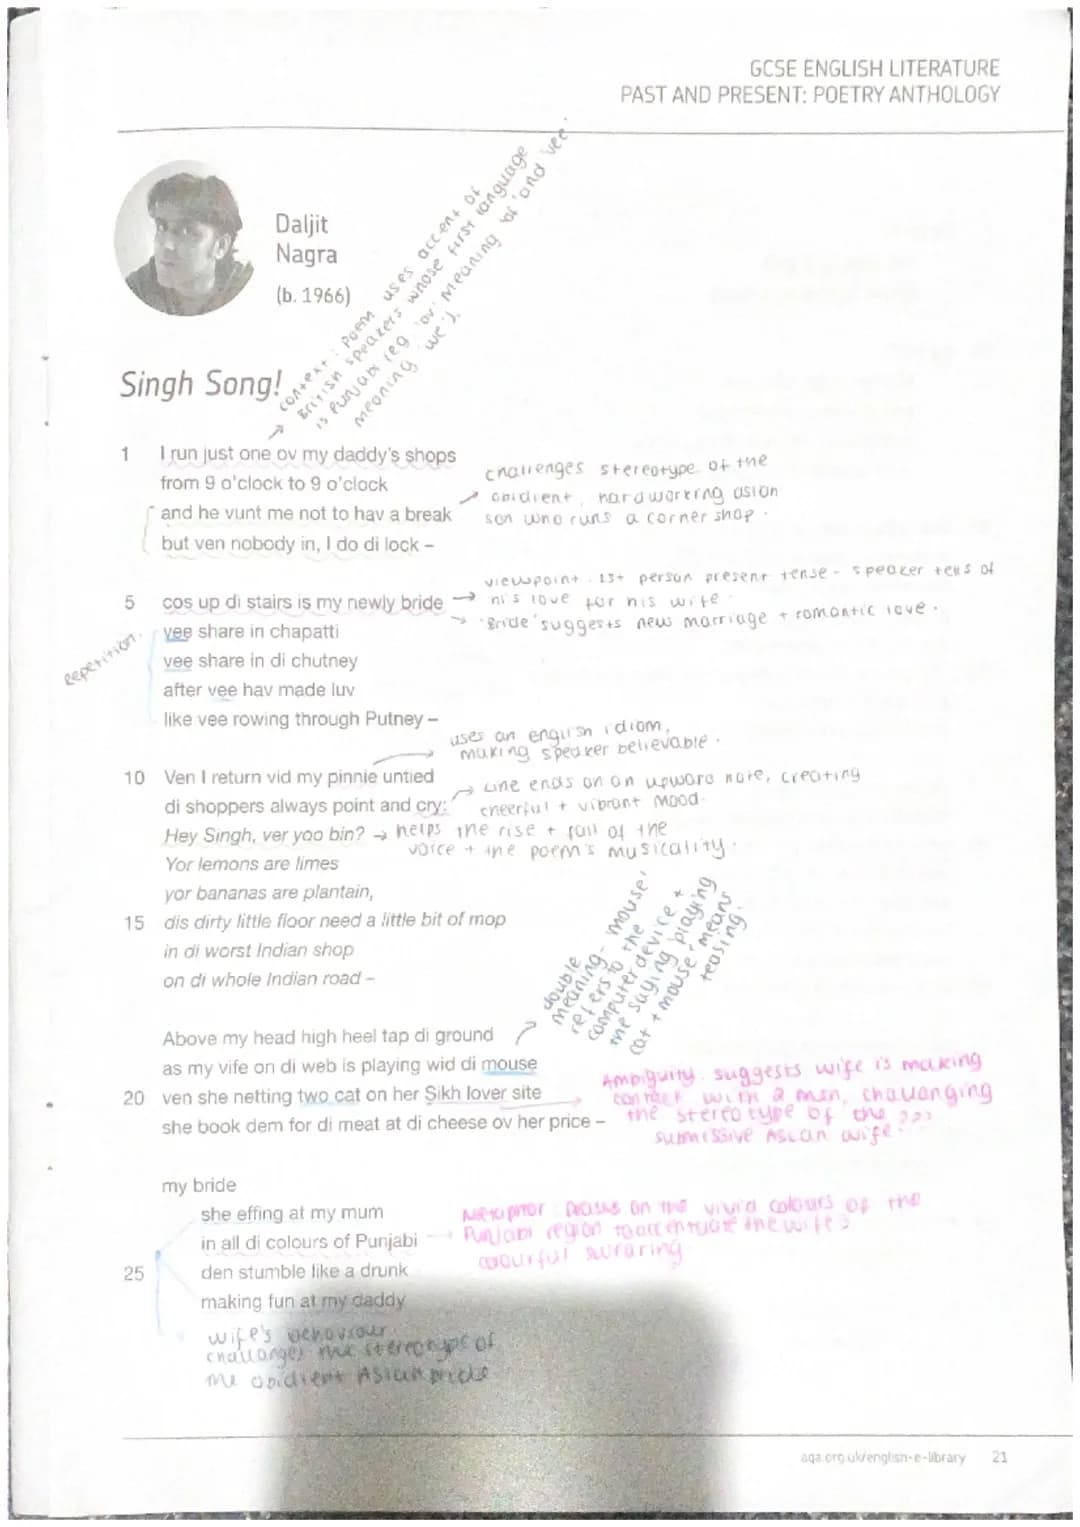 GCSE ENGLISH LITERATURE
PAST AND PRESENT: POETRY ANTHOLOGY
Daljit
Nagra
(b. 1966)
context: Poem uses accent of
British speakers whose first language
is Punjabi (eg 'ov' meaning 'of' and 'vee'
meaning 'we').
Singh Song!
1 I run just one ov my daddy's shops
from 9 o'clock to 9 o'clock
and he vunt me not to hav a break
but ven nobody in, I do di lock –
challenges stereotype of the
obidient, hardworking asian
son who runs a corner shop.
viewpoint. 1st person present tense - speaker tells of
his love for his wife.
'Bride' suggests new marriage + romantic love.
5 cos up di stairs is my newly bride
vee share in chapatti
vee share in di chutney
after vee hav made luv
like vee rowing through Putney –
Repetition.
uses an english idiom,
making speaker believable.
10 Ven I return vid my pinnie untied
di shoppers always point and cry:
Hey Singh, ver yoo bin?
Yor lemons are limes
yor bananas are plantain,
15 dis dirty little floor need a little bit of mop
in di worst Indian shop
on di whole Indian road –
Line ends on an upward note, creating
cheerful + vibrant mood.
helps the rise + fall of the
voice + the poem's musicality.
double
meaning - 'mouse'
refers to the
computer device +
the saying 'playing
cat + mouse' means
teasing.
Above my head high heel tap di ground
as my vife on di web is playing wid di mouse
20 ven she netting two cat on her Sikh lover site
she book dem for di meat at di cheese ov her price –
Ambiguity. suggests wife is making
contact with 2 men, challanging
the stereotype of the
submissive Asian wife.
my bride
she effing at my mum
in all di colours of Punjabi
25 den stumble like a drunk
making fun at my daddy
Metaphor: Draws on the vivid colours of the
Punjabi region to accentuate the wife's
colourful swaring
wife's behaviour
challanges the stereotype of
the obidient Asian bride
aqa.org.uk/english-e-library 21